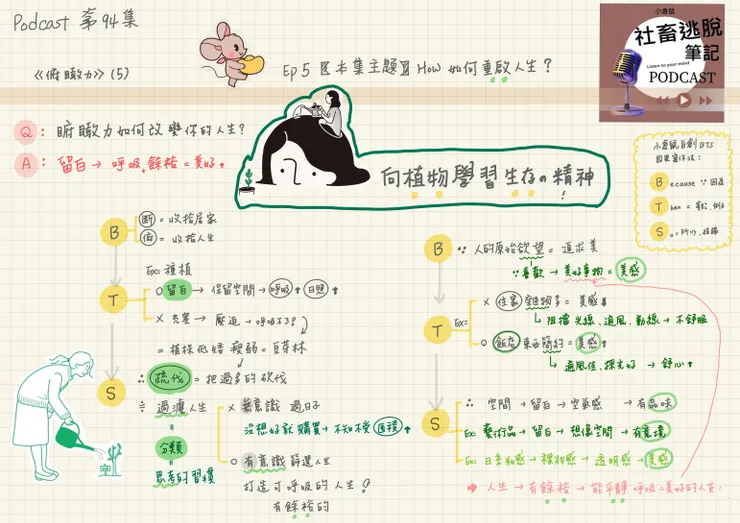 Podcast 第94集
《俯瞰力》(5)
Ep 5 【本集主題】 How 如何重啟人生？
小倉鼠
社畜逃脫
筆記
Listen to your mind
PODCAST
Q: 俯瞰力如何改變你的人生？
A: 留白→呼吸+餘裕=美好↑
向植物學習生存の精神！
小倉鼠自創BTS
因果寫作法：
Because ∵ 因為
Then = 舉例、例子
So = 所以、結論
B
斷 = 收拾居家
俯 = 收拾人生
Ex: 種植
T
○ 留白 → 保留空間 → 呼吸↑ 日照↑
× 充塞 → 壓迫 → 呼吸不了？
= 植株低矮 瘦弱 = 豆芽林
S
∴ 疏伐 = 把過多的砍伐
÷ 過濾人生
分類
思考的習慣
× 無意識 過日子
沒想好就購買 → 不知不覺 囤積↑
○ 有意識 篩選人生
打造可呼吸的人生！
有餘裕的
B
∵ 人的原始欲望 = 追求美
∵ 喜歡 → 美好事物 = 美感
T
Ex=
× 住家 雜物多 = 美感↓
↳ 阻擋光線、通風、動線 → 不舒服
○ 飯店 東西簡約 = 美感↑
↳ 通風佳、採光好 → 舒心↑
S
∴ 空間 → 留白 → 空氣感 → 有品味
Ex: 藝術品 → 留白 → 想像空間 → 有意境
Ex: 日系妝感 → 裸妝感 → 透明感 → 美感
→ 人生 → 有餘裕 → 能平靜 呼吸 = 美好的人生